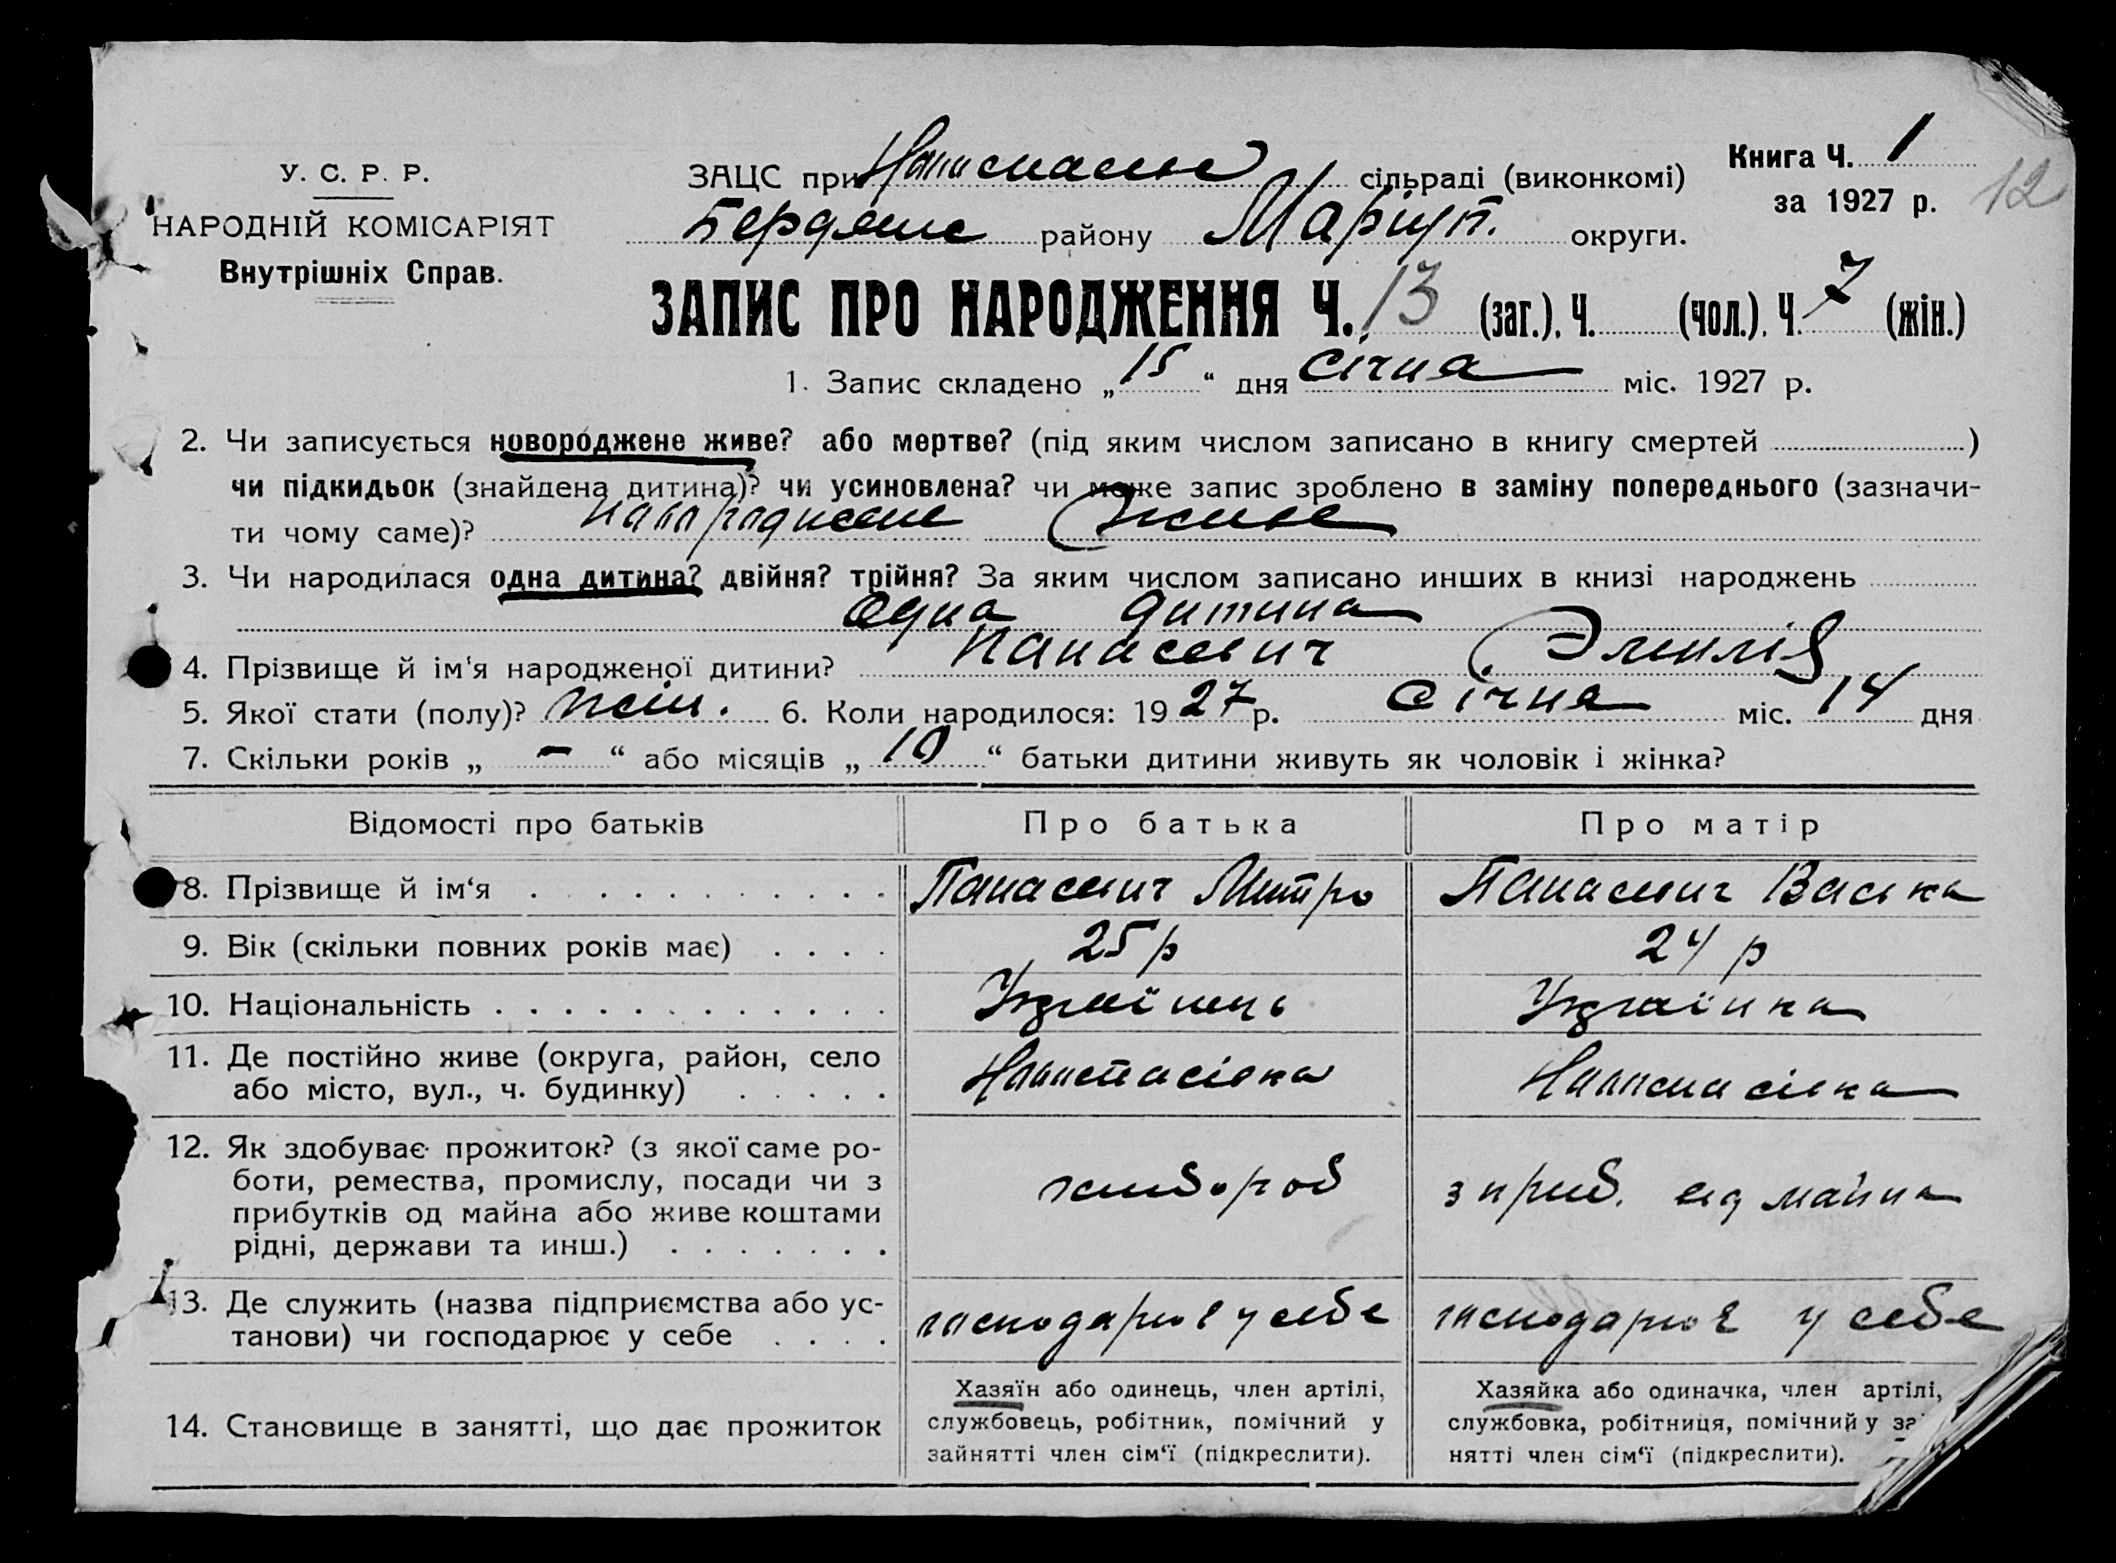 У. С. Р. Р.
НАРОДНІЙ КОМІСАРІЯТ
Внутрішніх Справ.
ЗАЦС при сільраді (виконкомі)
Бердянс району Маріуп. округи.
Книга Ч. 1
за 1927 р.
12
ЗАПИС ПРО НАРОДЖЕННЯ Ч. 13 (заг.), Ч. (чол.), Ч. 7 (жін.)
1. Запис складено „15“ дня січня міс. 1927 р.
2. Чи записується новороджене живе? або мертве? (під яким числом записано в книгу смертей )
чи підкидьок (знайдена дитина)? чи усиновлена? чи може запис зроблено в заміну попереднього (зазначи-
ти чому саме)? новороджене живе
3. Чи народилася одна дитина? двійня? трійня? За яким числом записано инших в книзі народжень
одна дитина
4. Прізвище й ім'я народженої дитини? Панасевич Эмилія
5. Якої стати (полу)? жін. 6. Коли народилося: 1927 р. січня міс. 14 дня
7. Скільки років „ – “ або місяців „ 10 “ батьки дитини живуть як чоловік і жінка?
Відомості про батьків Про батька Про матір
8. Прізвище й ім‘я Панасевич Митро Панасевич Васька
9. Вік (скільки повних років має) 25 р 24 р
10. Національність Українець Українка
11. Де постійно живе (округа, район, село
або місто, вул., ч. будинку)
12. Як здобуває прожиток? (з якої саме ро-
боти, ремества, промислу, посади чи з
прибутків од майна або живе коштами
рідні, держави та инш.) хлібороб з приб. від майна
13. Де служить (назва підприємства або ус-
танови) чи господарює у себе господарює у себе господарює у себе
14. Становище в занятті, що дає прожиток
Хазяїн або одинець, член артілі,
службовець, робітник, помічний у
зайнятті член сім‘ї (підкреслити).
Хазяйка або одиначка, член артілі,
службовка, робітниця, помічний у за
нятті член сім‘ї (підкреслити).